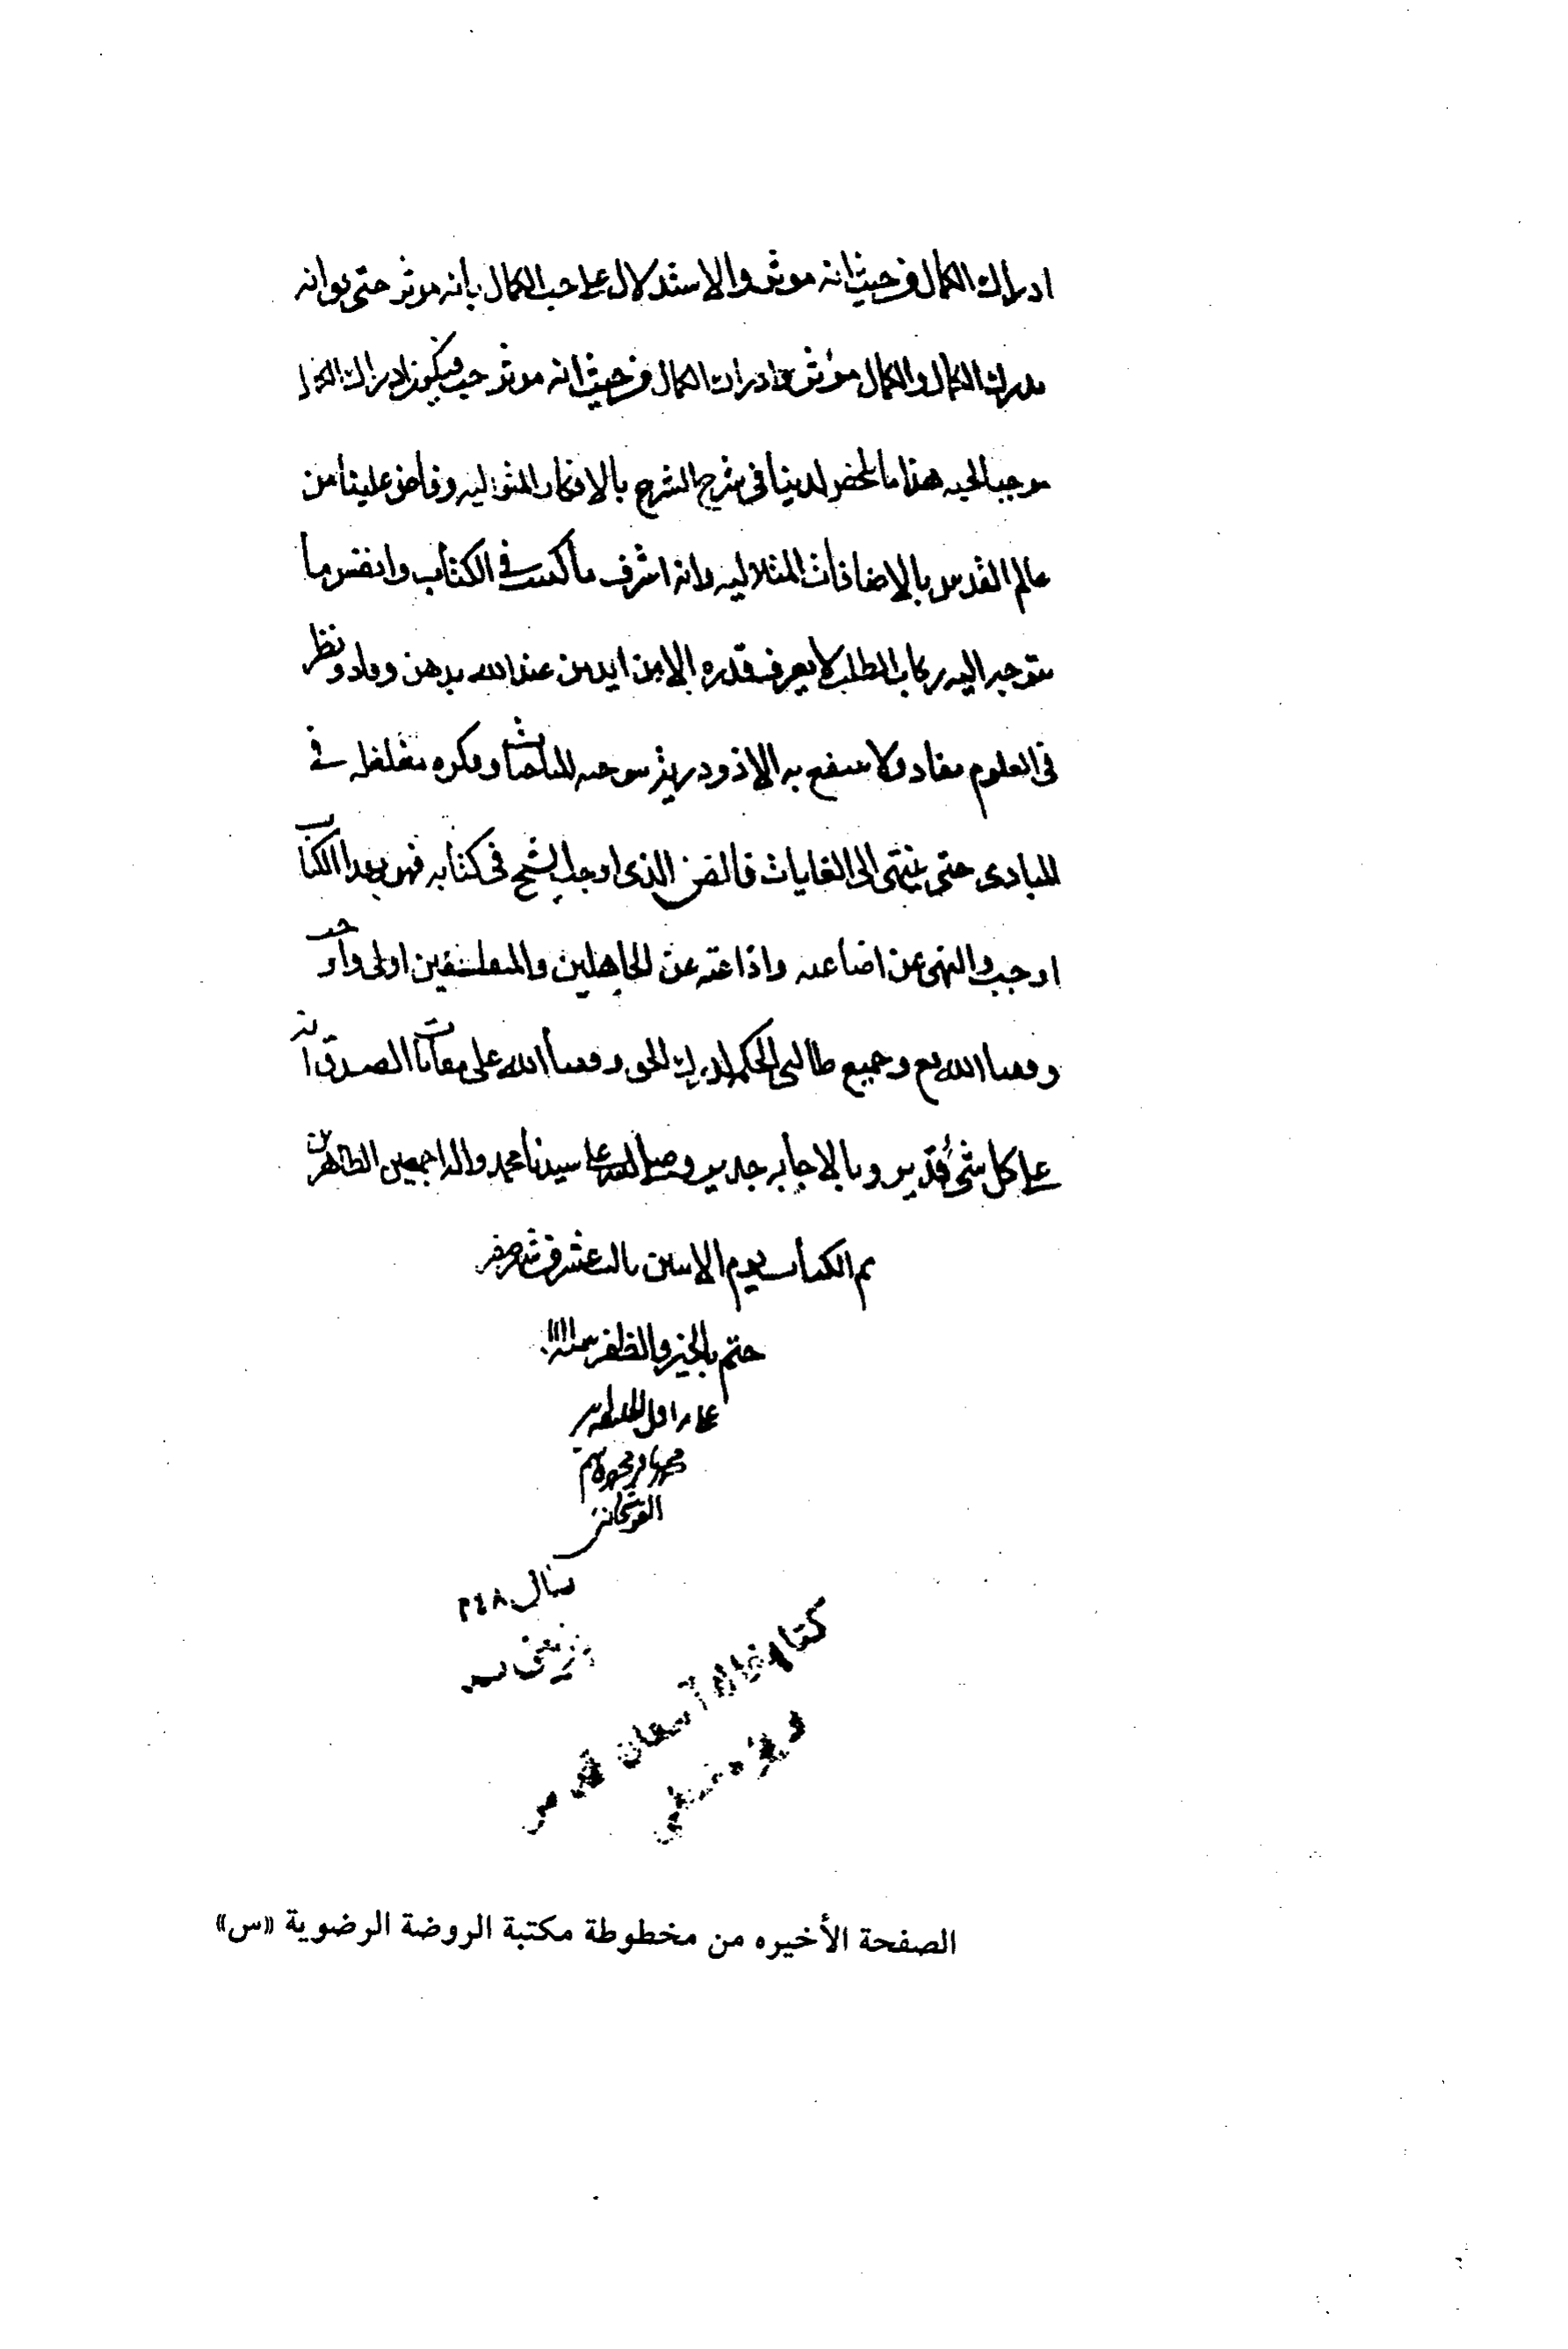 ادراك الكمال من حيث انه موثر والاستدلال على حب الكمال بانه موثر حتى يو انه
مدرك الكمال والكمال موثر وادراك الكمال من حيث انه موثر حب فيكون ادراك الكمال
موجبا لحبه هذا ما لخص لدينا في شرح الشرح بالافكار المتواليه وفاض علينا من
عالم القدس بالاضافات المتلاليه وانه اشرف ما كتب في الكتاب وانفس ما
يتوجه اليه ركاب الطلب لا يعرف قدره الا من ايد من عند الله بذهن وقاد ونظر
في العلوم نقاد ولا ينتفع به الا ذو دربة في المباحث وفكره متغلغله في
المبادى حتى ينتهى الى الغايات فالضن الذى اوجب الشيخ في كتابه فهو بهذا الكتاب
اوجب والنهى عن اضاعته واذاعته عن الجاهلين والمتفلسفين اولى واحرى
وفقنا الله مع وجميع طالبى الحكمه لدرك الحق وفقنا الله على مقامات الصدق انه
على كل شئ قدير وبالاجابه جدير وصلى الله على سيدنا محمد واله اجمعين الطاهرين
تم الكتاب يوم الاثنين ثالث عشر من شهر صفر
ختم بالخير والظفر سنه
على يد اقل الخليقه
سال
كتابخانه آستان قدس
رضوى
الصفحة الأخيره من مخطوطة مكتبة الروضة الرضوية «س»